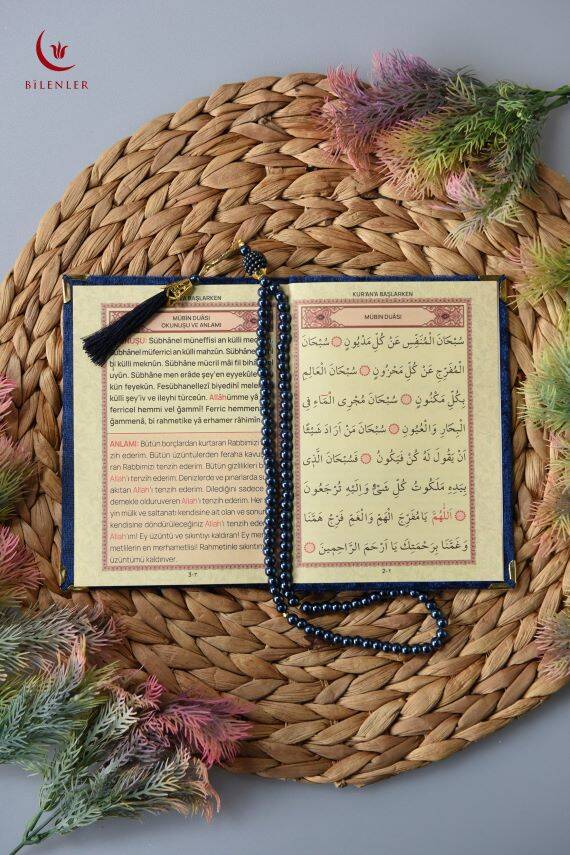 BİLENLER
BAŞLARKEN
MÜBİN DUÂSI
OKUNUŞU VE ANLAMI
Sübhânel müneffisi an külli
Sübhânel müferrici an külli mahzûn. Sübhâne
külli meknûn. Sübhâne mücril mâi fil
uyûn. Sübhâne men erâde şey'en eyyekûle
kün feyekûn. Fesübhanellezî biyedihî
külli şey'iv ve ileyhi türceûn. Allâhümme yâ
ferricel hemmi vel ğammi! Ferric hemmenâ
ğammenâ, bi rahmetike yâ erhamer
ANLAMI: Bütün borçlardan kurtaran Rabbimizi
zih ederim. Bütün üzüntülerden feraha
ran Rabbimizi tenzih ederim. Bütün gizlilikleri
Allah'ı tenzih ederim. Denizlerde ve pınarlarda
akıtan Allah'ı tenzih ederim. Dilediğini sadece
demekle olduruveren Allah'ı tenzih ederim. Her
yin mülk ve saltanatı kendisine ait olan ve
kendisine döndürüleceğiniz Allah'ı tenzih
Allah'ım! Ey üzüntü ve sıkıntıyı kaldıran! Ey
metlilerin en merhametlisi! Rahmetinle
üzüntümü kaldırıver.
3-٣
KUR'AN'A BAŞLARKEN
MÜBİN DUÂSI
سُبْحَانَ الْمُنَفِّسِ عَنْ كُلِّ مَدْيُونٍ سُبْحَانَ
الْمُفَرِّجِ عَنْ كُلِّ مَحْزُونٍ سُبْحَانَ الْعَالِمِ
بِكُلِّ مَكْنُونٍ سُبْحَانَ مُجْرِى الْمَاءِ فِى
الْبِحَارِ وَالْعُيُونِ سُبْحَانَ مَنْ اَرَادَ شَيْئًا
اَنْ يَقُولَ لَهُ كُنْ فَيَكُونُ فَسُبْحَانَ الَّذِى
بِيَدِهِ مَلَكُوتُ كُلِّ شَيْءٍ وَاِلَيْهِ تُرْجَعُونَ
اَللّٰهُمَّ يَامُفَرِّجَ الْهَمِّ وَالْغَمِّ فَرِّجْ هَمَّنَا
وَغَمَّنَا بِرَحْمَتِكَ يَا اَرْحَمَ الرَّاحِمِينَ
2-٢